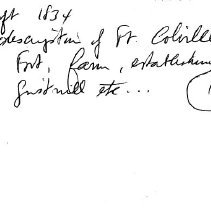 pt 1834
description of Ft. Colville
Fort, farm, establishm
gristmill etc...